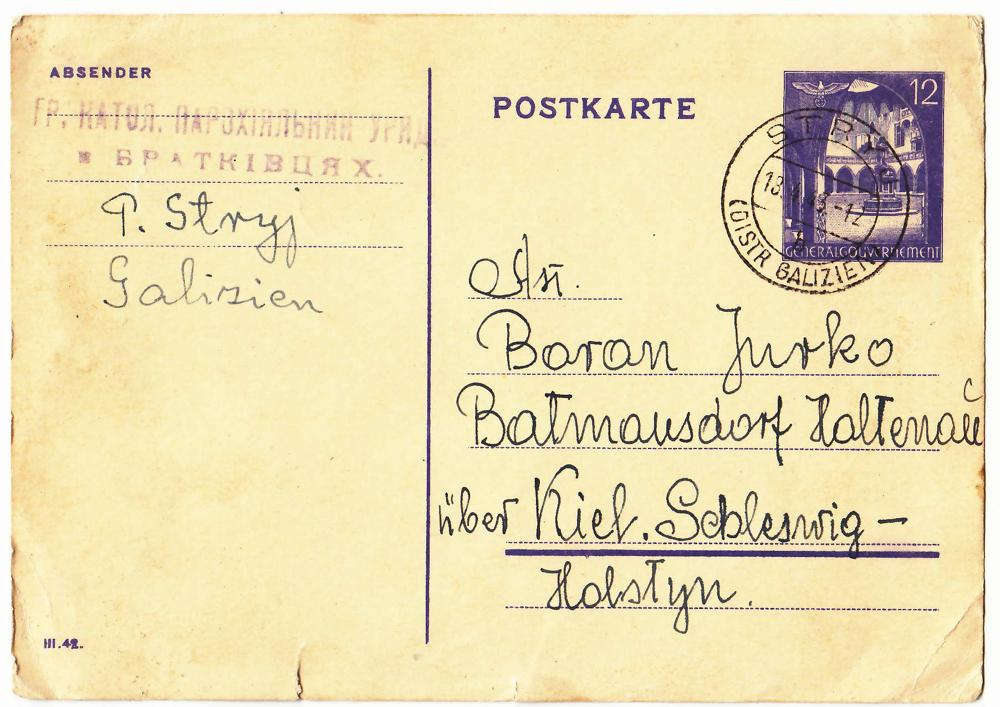 ABSENDER
ГР. КАТОЛ. ПАРОХІЯЛЬНИЙ УРЯД
в БРАТКІВЦЯХ.
P. Stryj
Galizien
III.42.
POSTKARTE
12
GENERALGOUVERNEMENT
STRYJ
13. -12
(DISTR GALIZIEN)
An.
Baran Jurko
Batmausdorf Haltenau
über Kiel. Schleswig –
Holstyn.